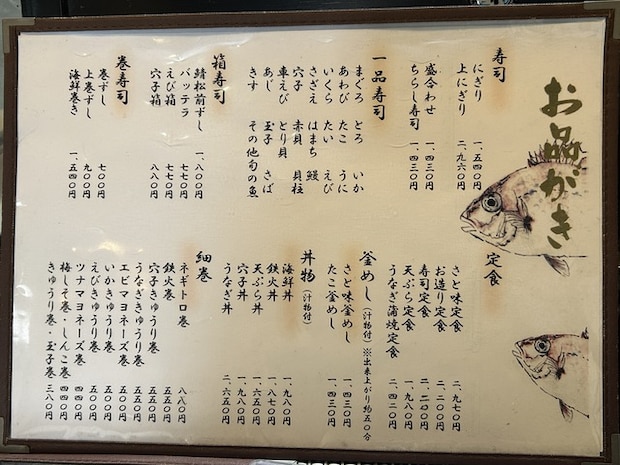 お品がき
寿司
にぎり 一、五四〇円
上にぎり 二、九六〇円
盛合わせ 一、四三〇円
ちらし寿司 一、四三〇円
一品寿司
まぐろ とろ いか
あわび たこ うに
いくら たい えび
さざえ はまち 鰻
穴子 赤貝 貝柱
車えび とり貝
あじ 玉子 さば
きす その他旬の魚
箱寿司
鯖松前ずし 一、八〇〇円
バッテラ 七七〇円
えび箱 七七〇円
穴子箱 八八〇円
巻寿司
巻ずし 七〇〇円
上巻ずし 九〇〇円
海鮮巻き 一、五四〇円
定食
さと味定食 二、九七〇円
お造り定食 二、二〇〇円
寿司定食 二、二〇〇円
天ぷら定食 一、九八〇円
うなぎ蒲焼定食 二、四二〇円
釜めし(汁物付)※出来上がり約五〇分
さと味釜めし 一、四三〇円
たこ釜めし 一、四三〇円
丼物(汁物付)
海鮮丼 一、九八〇円
鉄火丼 一、八七〇円
天ぷら丼 一、六五〇円
穴子丼 一、九八〇円
うなぎ丼 二、六五〇円
細巻
ネギトロ巻 八八〇円
鉄火巻 五五〇円
穴子きゅうり巻 五五〇円
うなぎきゅうり巻 五五〇円
エビマヨネーズ巻 五五〇円
いかきゅうり巻 五〇〇円
えびきゅうり巻 五〇〇円
ツナマヨネーズ巻 五〇〇円
梅しそ巻・しんこ巻 四四〇円
きゅうり巻・玉子巻 三八〇円